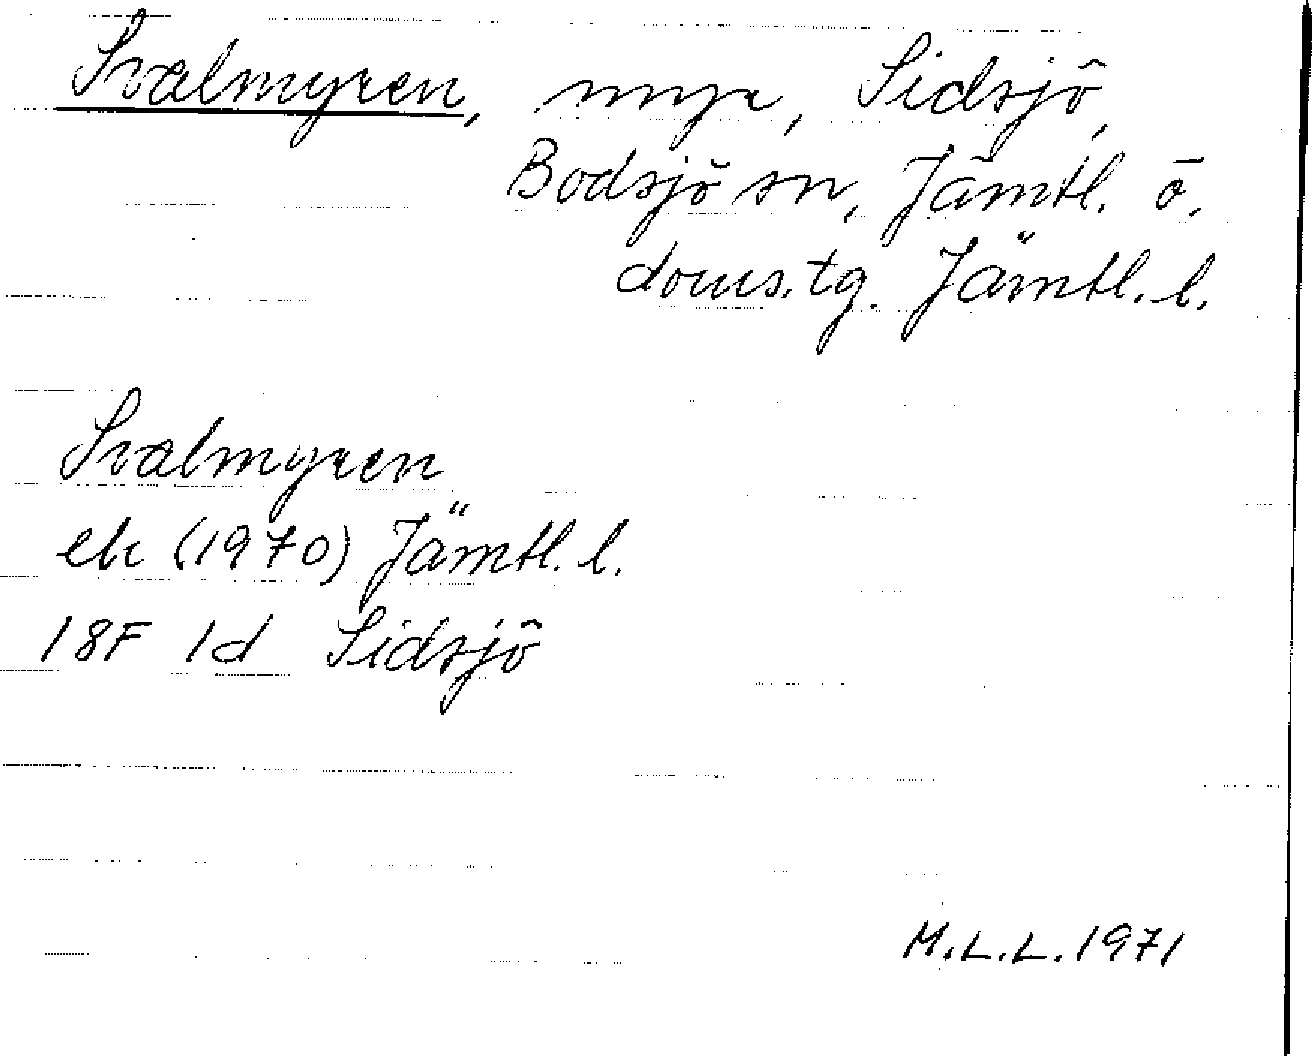 Svalmyren, myr, Sidsjö,
Bodsjö sn, Jämtl. ö.
doms.tg. Jämtl. l.
Svalmyren
ek (1970) Jämtl. l.
18F 1d Sidsjö
M.L.L. 1971